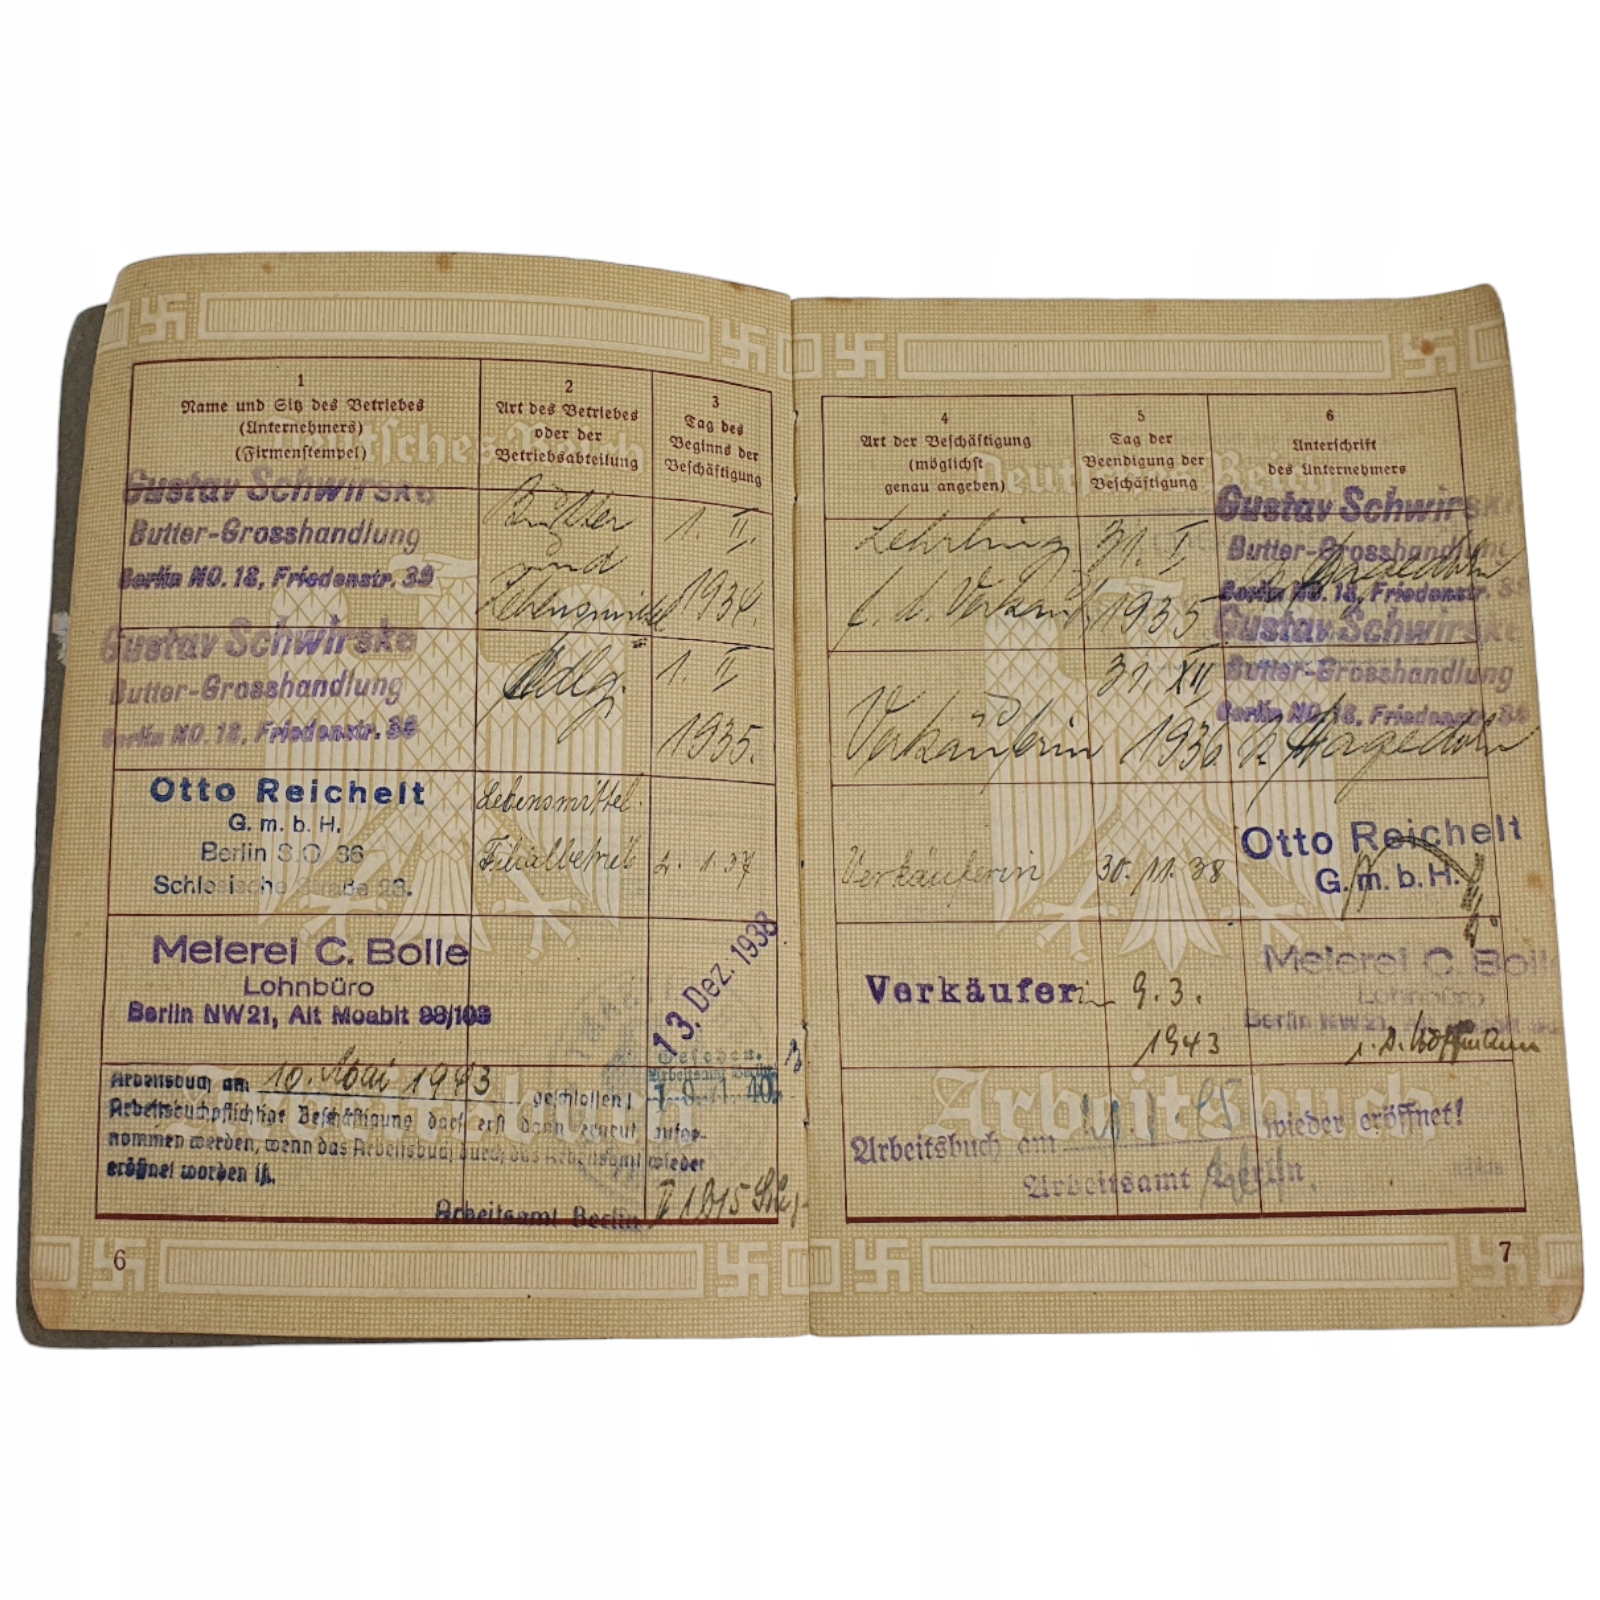 1
Name und Sitz des Betriebes
(Unternehmers)
(Firmenstempel)
2
Art des Betriebes
oder der
Betriebsabteilung
3
Tag des
Beginns der
Beschäftigung
Deutsches Reich
Gustav Schwirske
Butter-Grosshandlung
Berlin NO. 18, Friedenstr. 39
Butter
und
Lebensmittel
1. II.
1934.
Gustav Schwirske
Butter-Grosshandlung
Berlin NO. 18, Friedenstr. 39
1. II
1935.
Otto Reichelt
G. m. b. H.
Berlin S.O. 36
Schlesische Straße 28.
Lebensmittel.
Filialbetrieb
2. 1. 37
Meierei C. Bolle
Lohnbüro
Berlin NW 21, Alt Moabit 98/103
13. Dez. 1938
Gesehen.
Arbeitsamt Berlin
Arbeitsbuch am 10. Mai 1943 geschlossen!
Arbeitsbuchpflichtige Beschäftigung darf erst dann erneut aufge-
nommen werden, wenn das Arbeitsbuch durch das Arbeitsamt wieder
eröffnet worden ist.
Arbeitsamt Berlin
6
4
Art der Beschäftigung
(möglichst
genau angeben)
5
Tag der
Beendigung der
Beschäftigung
6
Unterschrift
des Unternehmers
Deutsches Reich
Lehrling
f. d. Verkauf
31. I.
1935
Gustav Schwirske
Butter-Grosshandlung
Berlin NO. 18, Friedenstr. 39
Verkäuferin
31. XII
1936
Gustav Schwirske
Butter-Grosshandlung
Berlin NO. 18, Friedenstr. 39
Hagedorn
Verkäuferin
30. 11. 38
Otto Reichelt
G. m. b. H.
Verkäuferin
9. 3.
1943
Meierei C. Bolle
Lohnbüro
Berlin NW 21, Alt Moabit
i. A. Hoffmann
Arbeitsbuch
Arbeitsbuch am wieder eröffnet!
Arbeitsamt Berlin
7